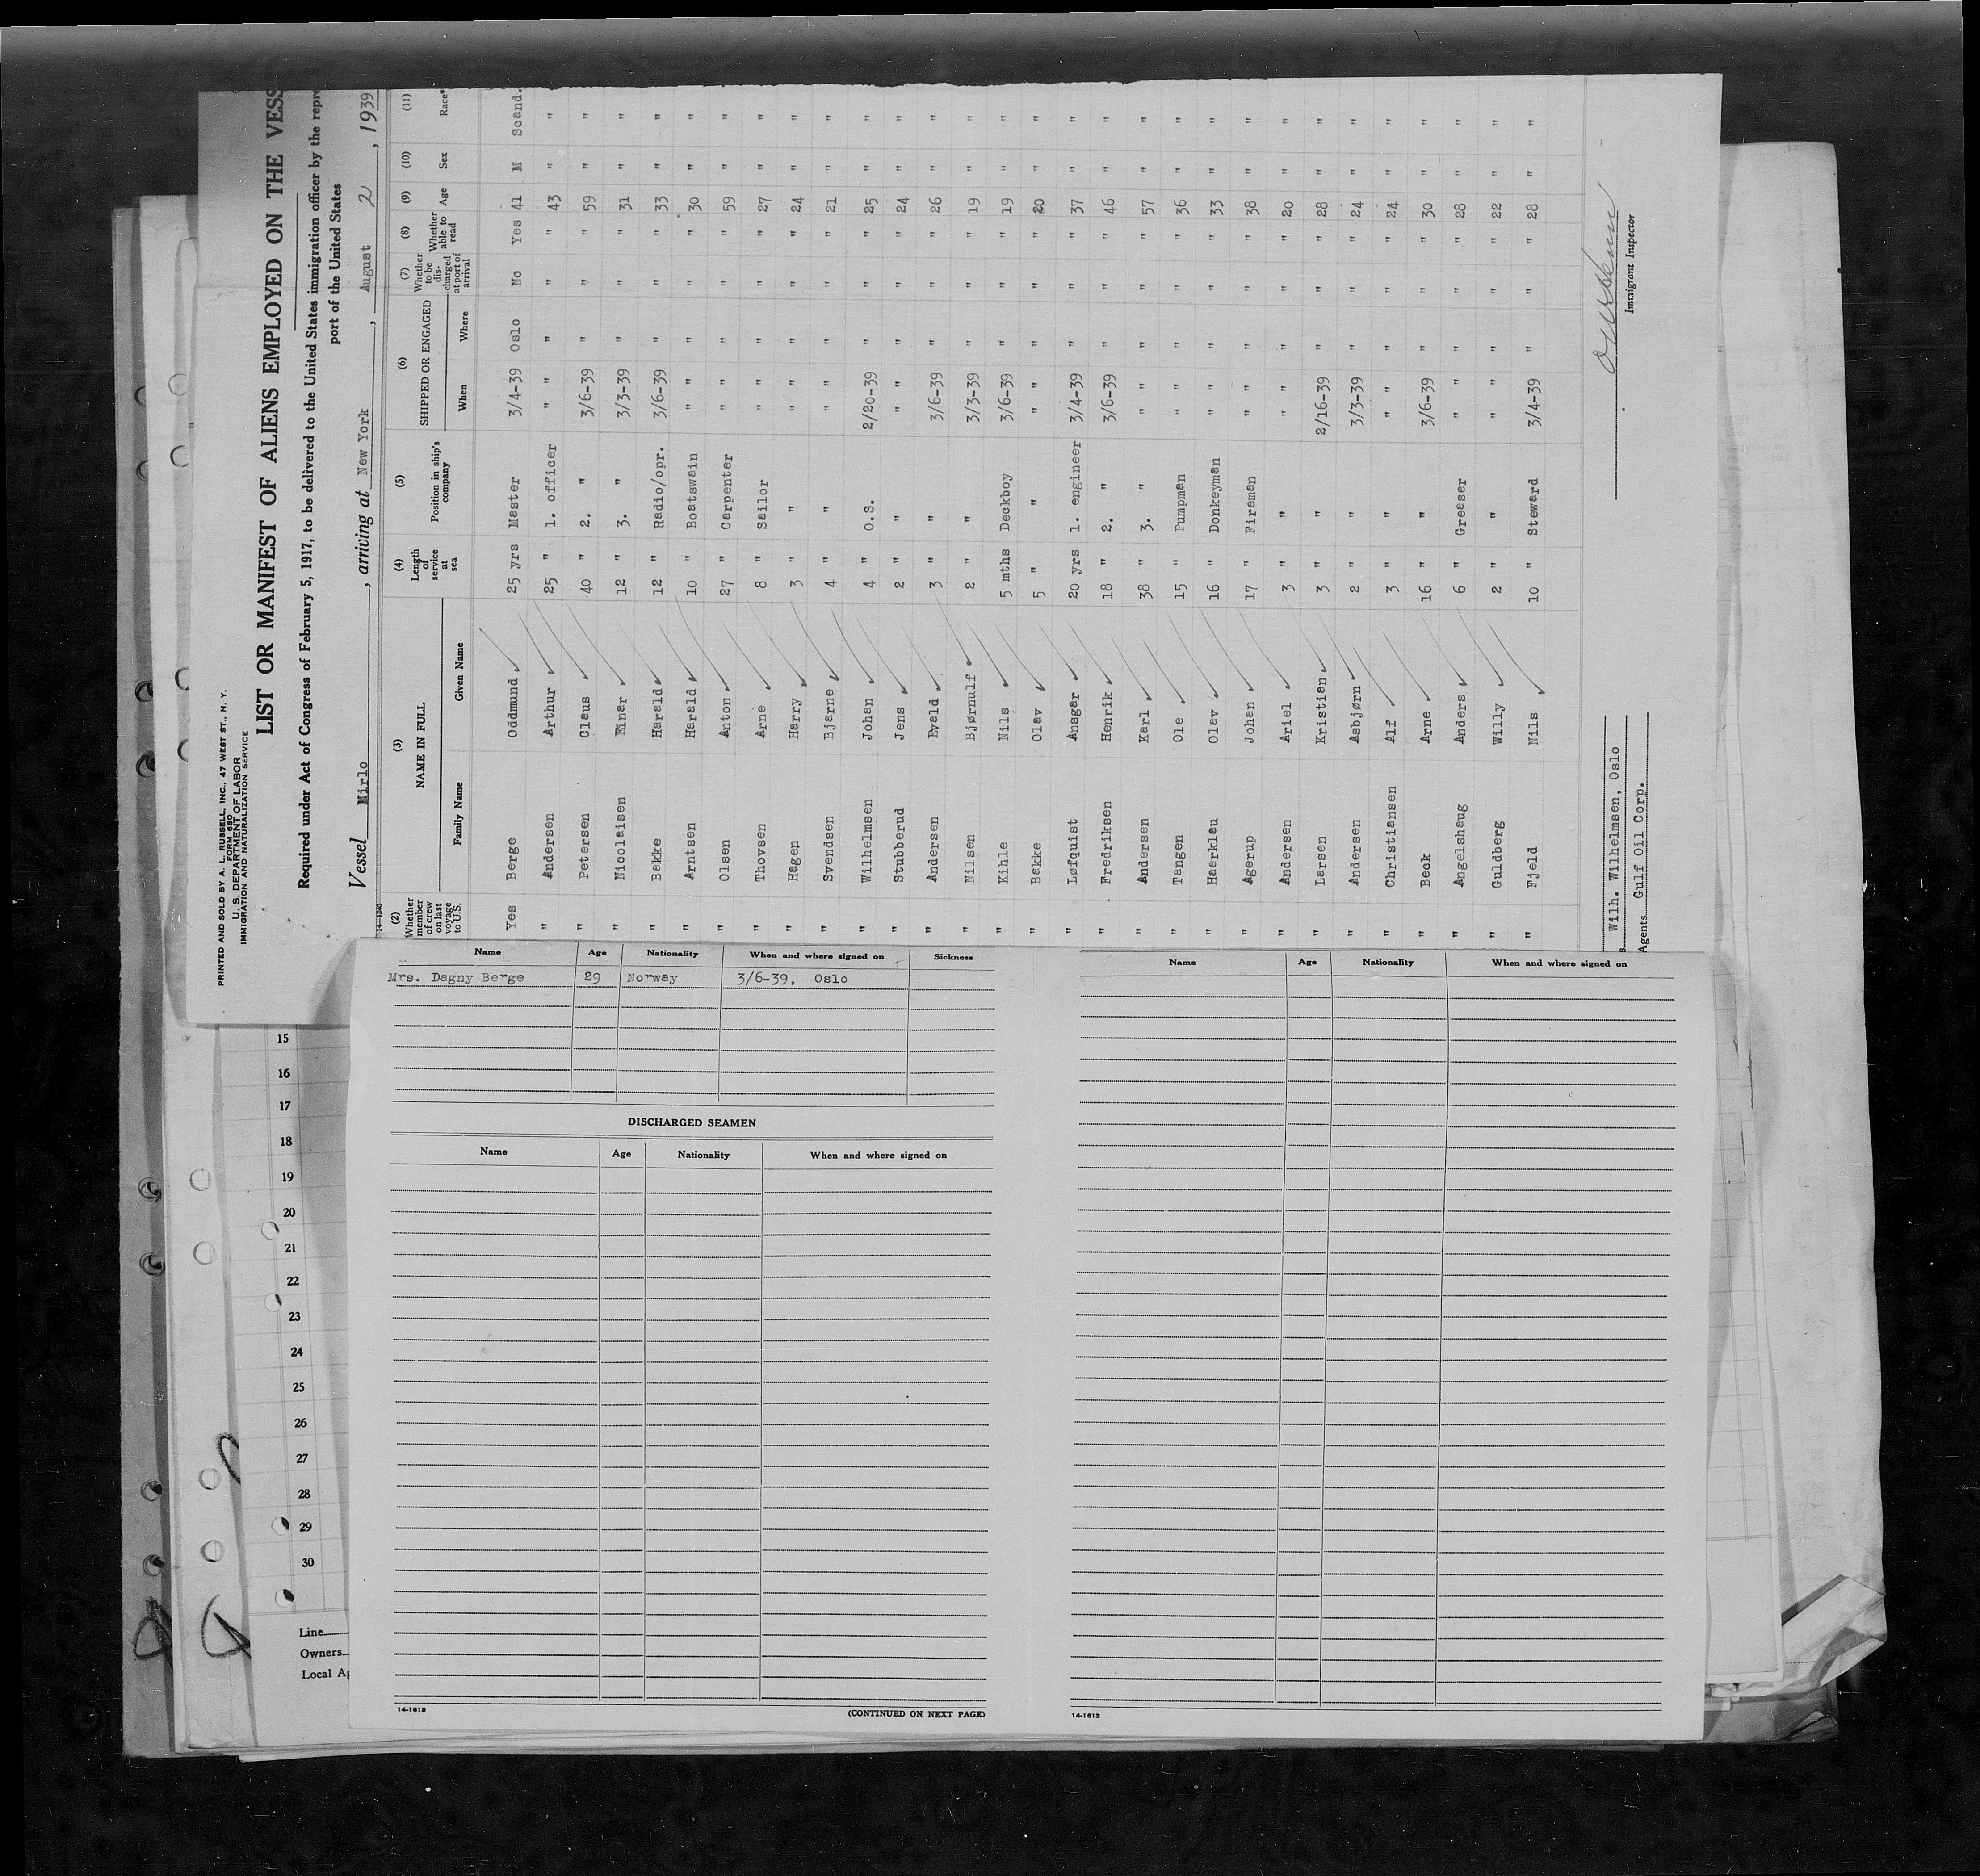 PRINTED AND SOLD BY A. L. RUSSELL, INC., 47 WEST ST., N. Y.
FORM 680
U. S. DEPARTMENT OF LABOR
IMMIGRATION AND NATURALIZATION SERVICE
LIST OR MANIFEST OF ALIENS EMPLOYED ON THE VESS
Required under Act of Congress of February 5, 1917, to be delivered to the United States immigration officer by the repre
port of the United States
Vessel Mirlo, arriving at New York, August 2, 1939
14-1240
(2) Whether member of crew on last voyage to U.S. (3) NAME IN FULL Family Name Given Name (4) Length of service at sea (5) Position in ship's company (6) SHIPPED OR ENGAGED When Where (7) Whether to be discharged at port of arrival (8) Whether able to read (9) Age (10) Sex (11) Race*
Yes Berge Oddmund 25 yrs Master 3/4-39 Oslo No Yes 41 M Scand.
" Andersen Arthur 25 " 1. officer " " " " 43 " "
" Petersen Claus 40 " 2. " 3/6-39 " " " 59 " "
" Nicolaisen Einar 12 " 3. " 3/3-39 " " " 31 " "
" Bakke Harald 12 " Radio/opr. 3/6-39 " " " 33 " "
" Arntsen Harald 10 " Boatswain " " " " 30 " "
" Olsen Anton 27 " Carpenter " " " " 59 " "
" Thovsen Arne 8 " Sailor " " " " 27 " "
" Hagen Harry 3 " " " " " " 24 " "
" Svendsen Bjarne 4 " " " " " " 21 " "
" Wilhelmsen Johan 4 " O.S. 2/20-39 " " " 25 " "
" Stubberud Jens 2 " " " " " " 24 " "
" Andersen Evald 3 " " 3/6-39 " " " 26 " "
" Nilsen Bjørnulf 2 " " 3/3-39 " " " 19 " "
" Kihle Nils 5 mths Deckboy 3/6-39 " " " 19 " "
" Bakke Olav 5 " " " " " " 20 " "
" Løfquist Ansgar 20 yrs 1. engineer 3/4-39 " " " 37 " "
" Fredriksen Henrik 18 " 2. " 3/6-39 " " " 46 " "
" Andersen Karl 38 " 3. " " " " " " 57 " "
" Tangen Ole 15 " Pumpman " " " " " 36 " "
" Haarklau Olav 16 " Donkeyman " " " " " 33 " "
" Agerup Johan 17 " Fireman " " " " " 38 " "
" Andersen Ariel 3 " " " " " " " 20 " "
" Larsen Kristian 3 " " 2/16-39 " " " 28 " "
" Andersen Asbjørn 2 " " 3/3-39 " " " 24 " "
" Christiansen Alf 3 " " " " " " " 24 " "
" Beck Arne 16 " " 3/6-39 " " " 30 " "
" Angelshaug Anders 6 " Greaser " " " " 28 " "
" Guldberg Willy 2 " " " " " " 22 " "
" Fjeld Nils 10 " Steward 3/4-39 " " " 28 " "
Wilh. Wilhelmsen, Oslo
Agents Gulf Oil Corp.
Immigrant Inspector
Name Age Nationality When and where signed on Sickness
Mrs. Dagny Berge 29 Norway 3/6-39, Oslo
DISCHARGED SEAMEN
Name Age Nationality When and where signed on
14-1613
(CONTINUED ON NEXT PAGE)
Name Age Nationality When and where signed on
14-1613
15
16
17
18
19
20
21
22
23
24
25
26
27
28
29
30
Line
Owners
Local Ag